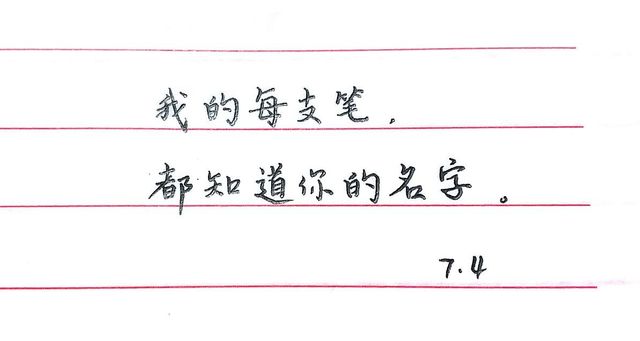 我的每支笔,
都知道你的名字。
7.4